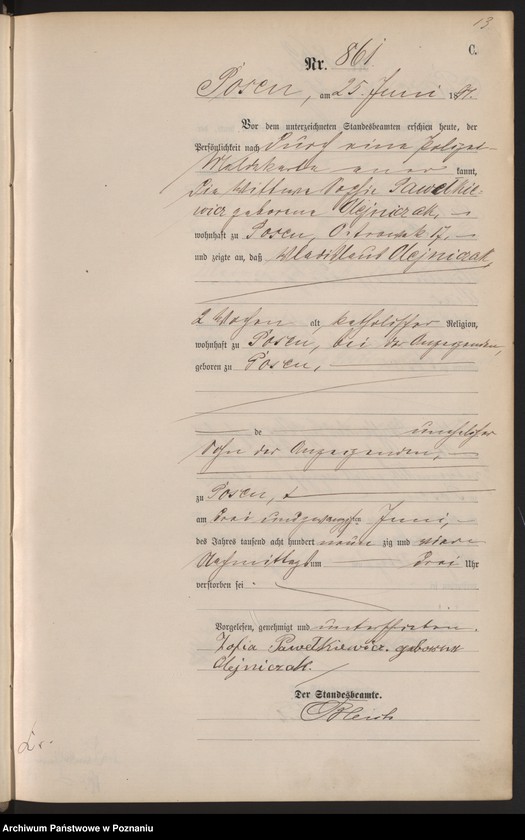 13
C.
Nr. 861
Posen, am 25. Juni 18
Vor dem unterzeichneten Standesbeamten erschien heute, der
Persönlichkeit nach durch eine Polizei-
Meldekarte aner kannt,
die Wittwe Sofie Pawełkie-
wicz geborene Olejniczak,
wohnhaft zu Posen, Ostrowek 17,
und zeigte an, daß Wladislaus Olejniczak,
2 Wochen alt, katholischer Religion,
wohnhaft zu Posen, bei der Anzeigenden,
geboren zu Posen,
de unehelicher
Sohn der Anzeigenden,
zu Posen,
am drei und zwanzigsten Juni,
des Jahres tausend acht hundert neun zig und vier
Nachmittags um drei Uhr
verstorben sei.
Vorgelesen, genehmigt und unterschrieben.
Zofia Pawełkiewicz geborene
Olejniczak.
Der Standesbeamte.
Archiwum Państwowe w Poznaniu